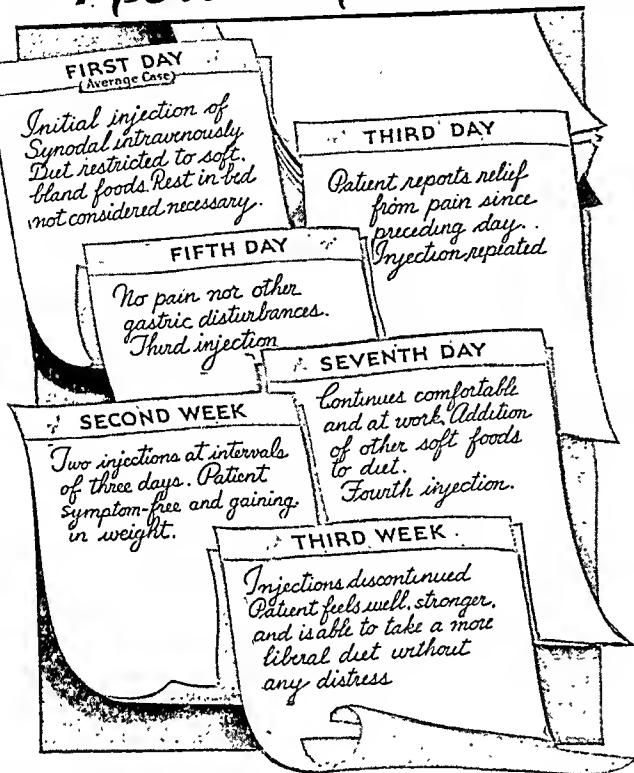 FIRST DAY
(Average Case)
Initial injection of
Synodal intravenously
Diet restricted to soft,
bland foods. Rest in bed
not considered necessary.
THIRD DAY
Patient reports relief
from pain since
preceding day..
Injection repeated
FIFTH DAY
No pain nor other
gastric disturbances.
Third injection
SEVENTH DAY
Continues comfortable
and at work. Addition
of other soft foods
to diet.
Fourth injection.
SECOND WEEK
Two injections at intervals
of three days. Patient
symptom-free and gaining
in weight.
THIRD WEEK
Injections discontinued
Patient feels well, stronger,
and is able to take a more
liberal diet without
any distress